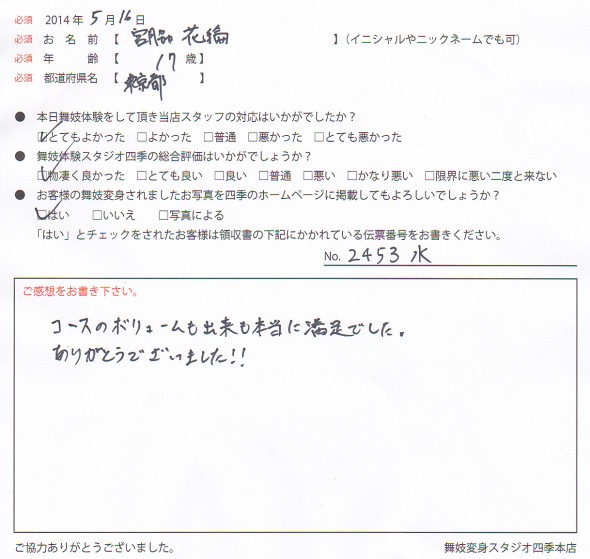 必須 2014年 5月 16日
必須 お 名 前 【 宮脇 花綸 】(イニシャルやニックネームでも可)
必須 年 齢 【 17 歳】
必須 都道府県名 【 東京都 】
● 本日舞妓体験をして頂き当店スタッフの対応はいかがでしたか?
☑とてもよかった □よかった □普通 □悪かった □とても悪かった
● 舞妓体験スタジオ四季の総合評価はいかがでしょうか?
☑物凄く良かった □とても良い □良い □普通 □悪い □かなり悪い □限界に悪い二度と来ない
● お客様の舞妓変身されましたお写真を四季のホームページに掲載してもよろしいでしょうか?
☑はい □いいえ □写真による
「はい」とチェックをされたお客様は領収書の下記にかかれている伝票番号をお書きください。
No. 2453 水
ご感想をお書き下さい。
コースのボリュームも出来も本当に満足でした。
ありがとうございました!!
ご協力ありがとうございました。 舞妓変身スタジオ四季本店